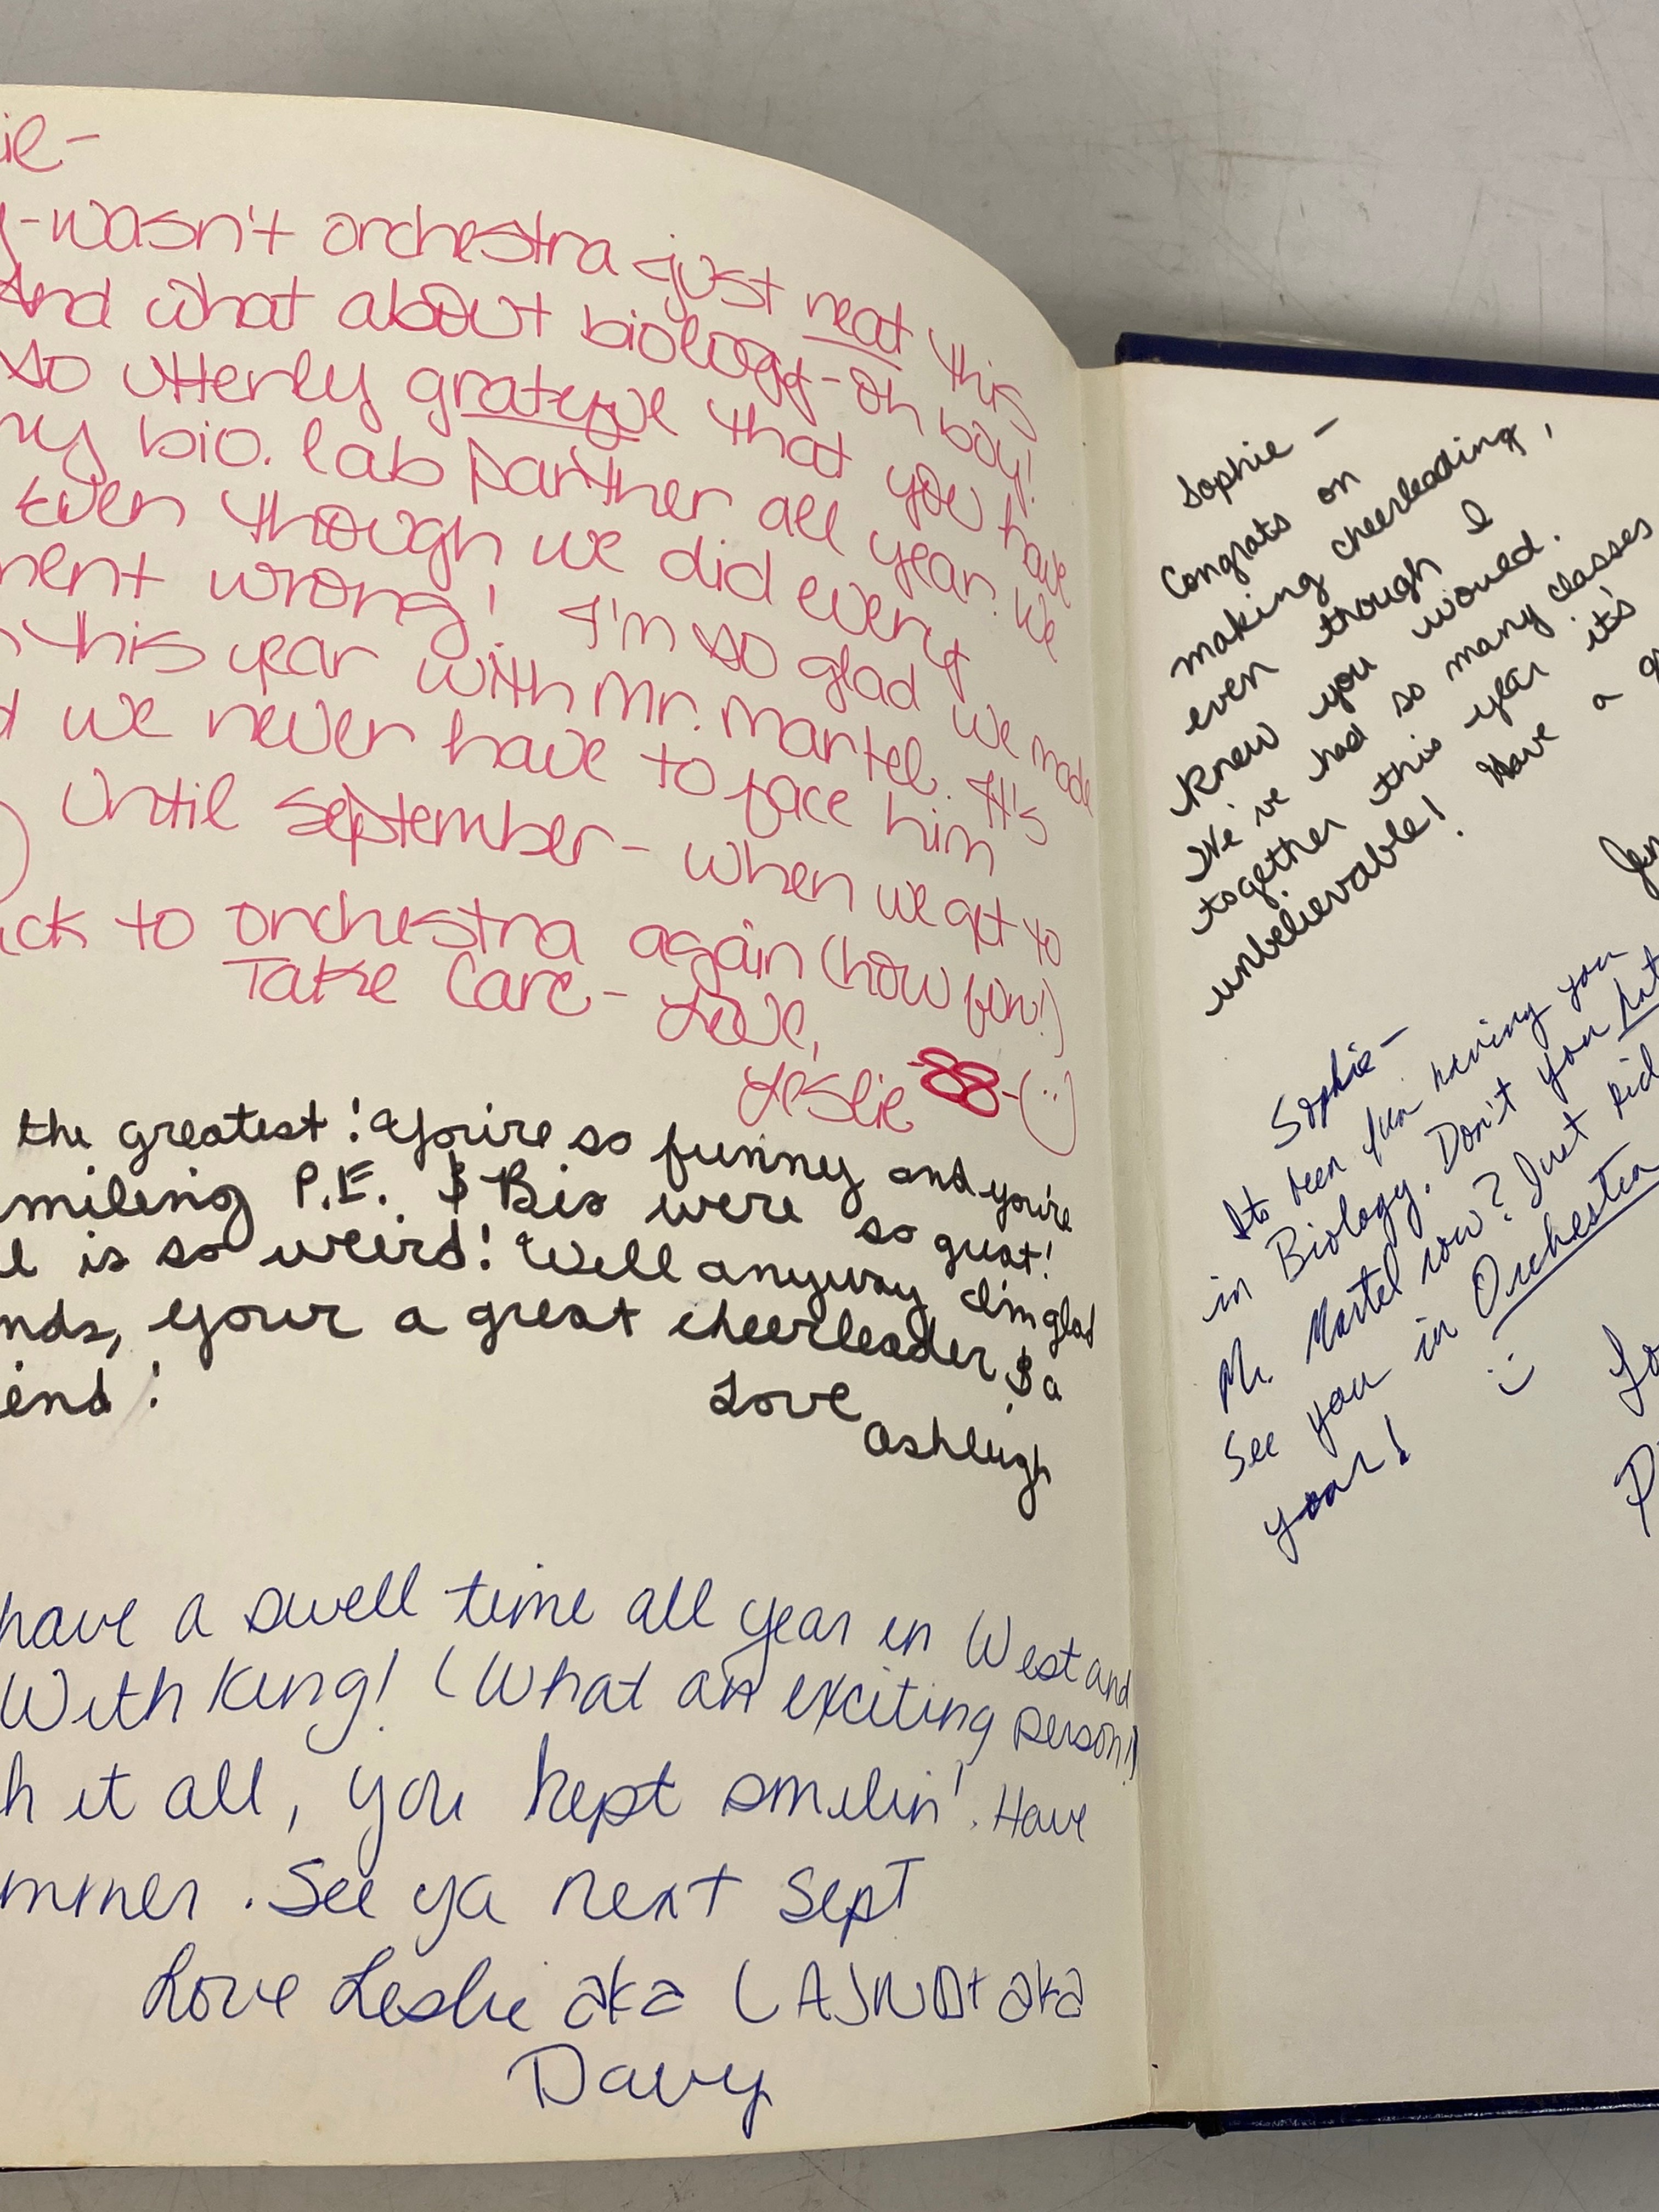 ie-
y-wasn't orchestra just neat this
And what about biology-oh boy!
so utterly grateful that you have
my bio. lab partner all year. We
Even though we did every
ment wrong! I'm so glad we made
this year with Mr. Martel. It's
d we never have to face him
Until September - when we get to
ck to orchestra again (how fun!)
Take Care - Love,
Leslie 88-(:)
the greatest! You're so funny and you're
miling P.E. & Bio were so great!
l is so weird! Well anyway I'm glad
nds, your a great cheerleader & a
end!
Love
Ashleigh
have a swell time all year in West and
With King! (What an exciting person!)
h it all, you kept smilin'. Have
mmer. See ya next Sept
Love Leslie aka aka
Davy
Sophie -
Congrats on
making cheerleading,
even though I
knew you would.
We've had so many classes
together this year it's
unbelievable! Have a
Jen
Sophie -
Its been fun having you
in Biology. Don't you
Mr. Martel now? Just kid
See you in Orchestra
year! :)
Lo